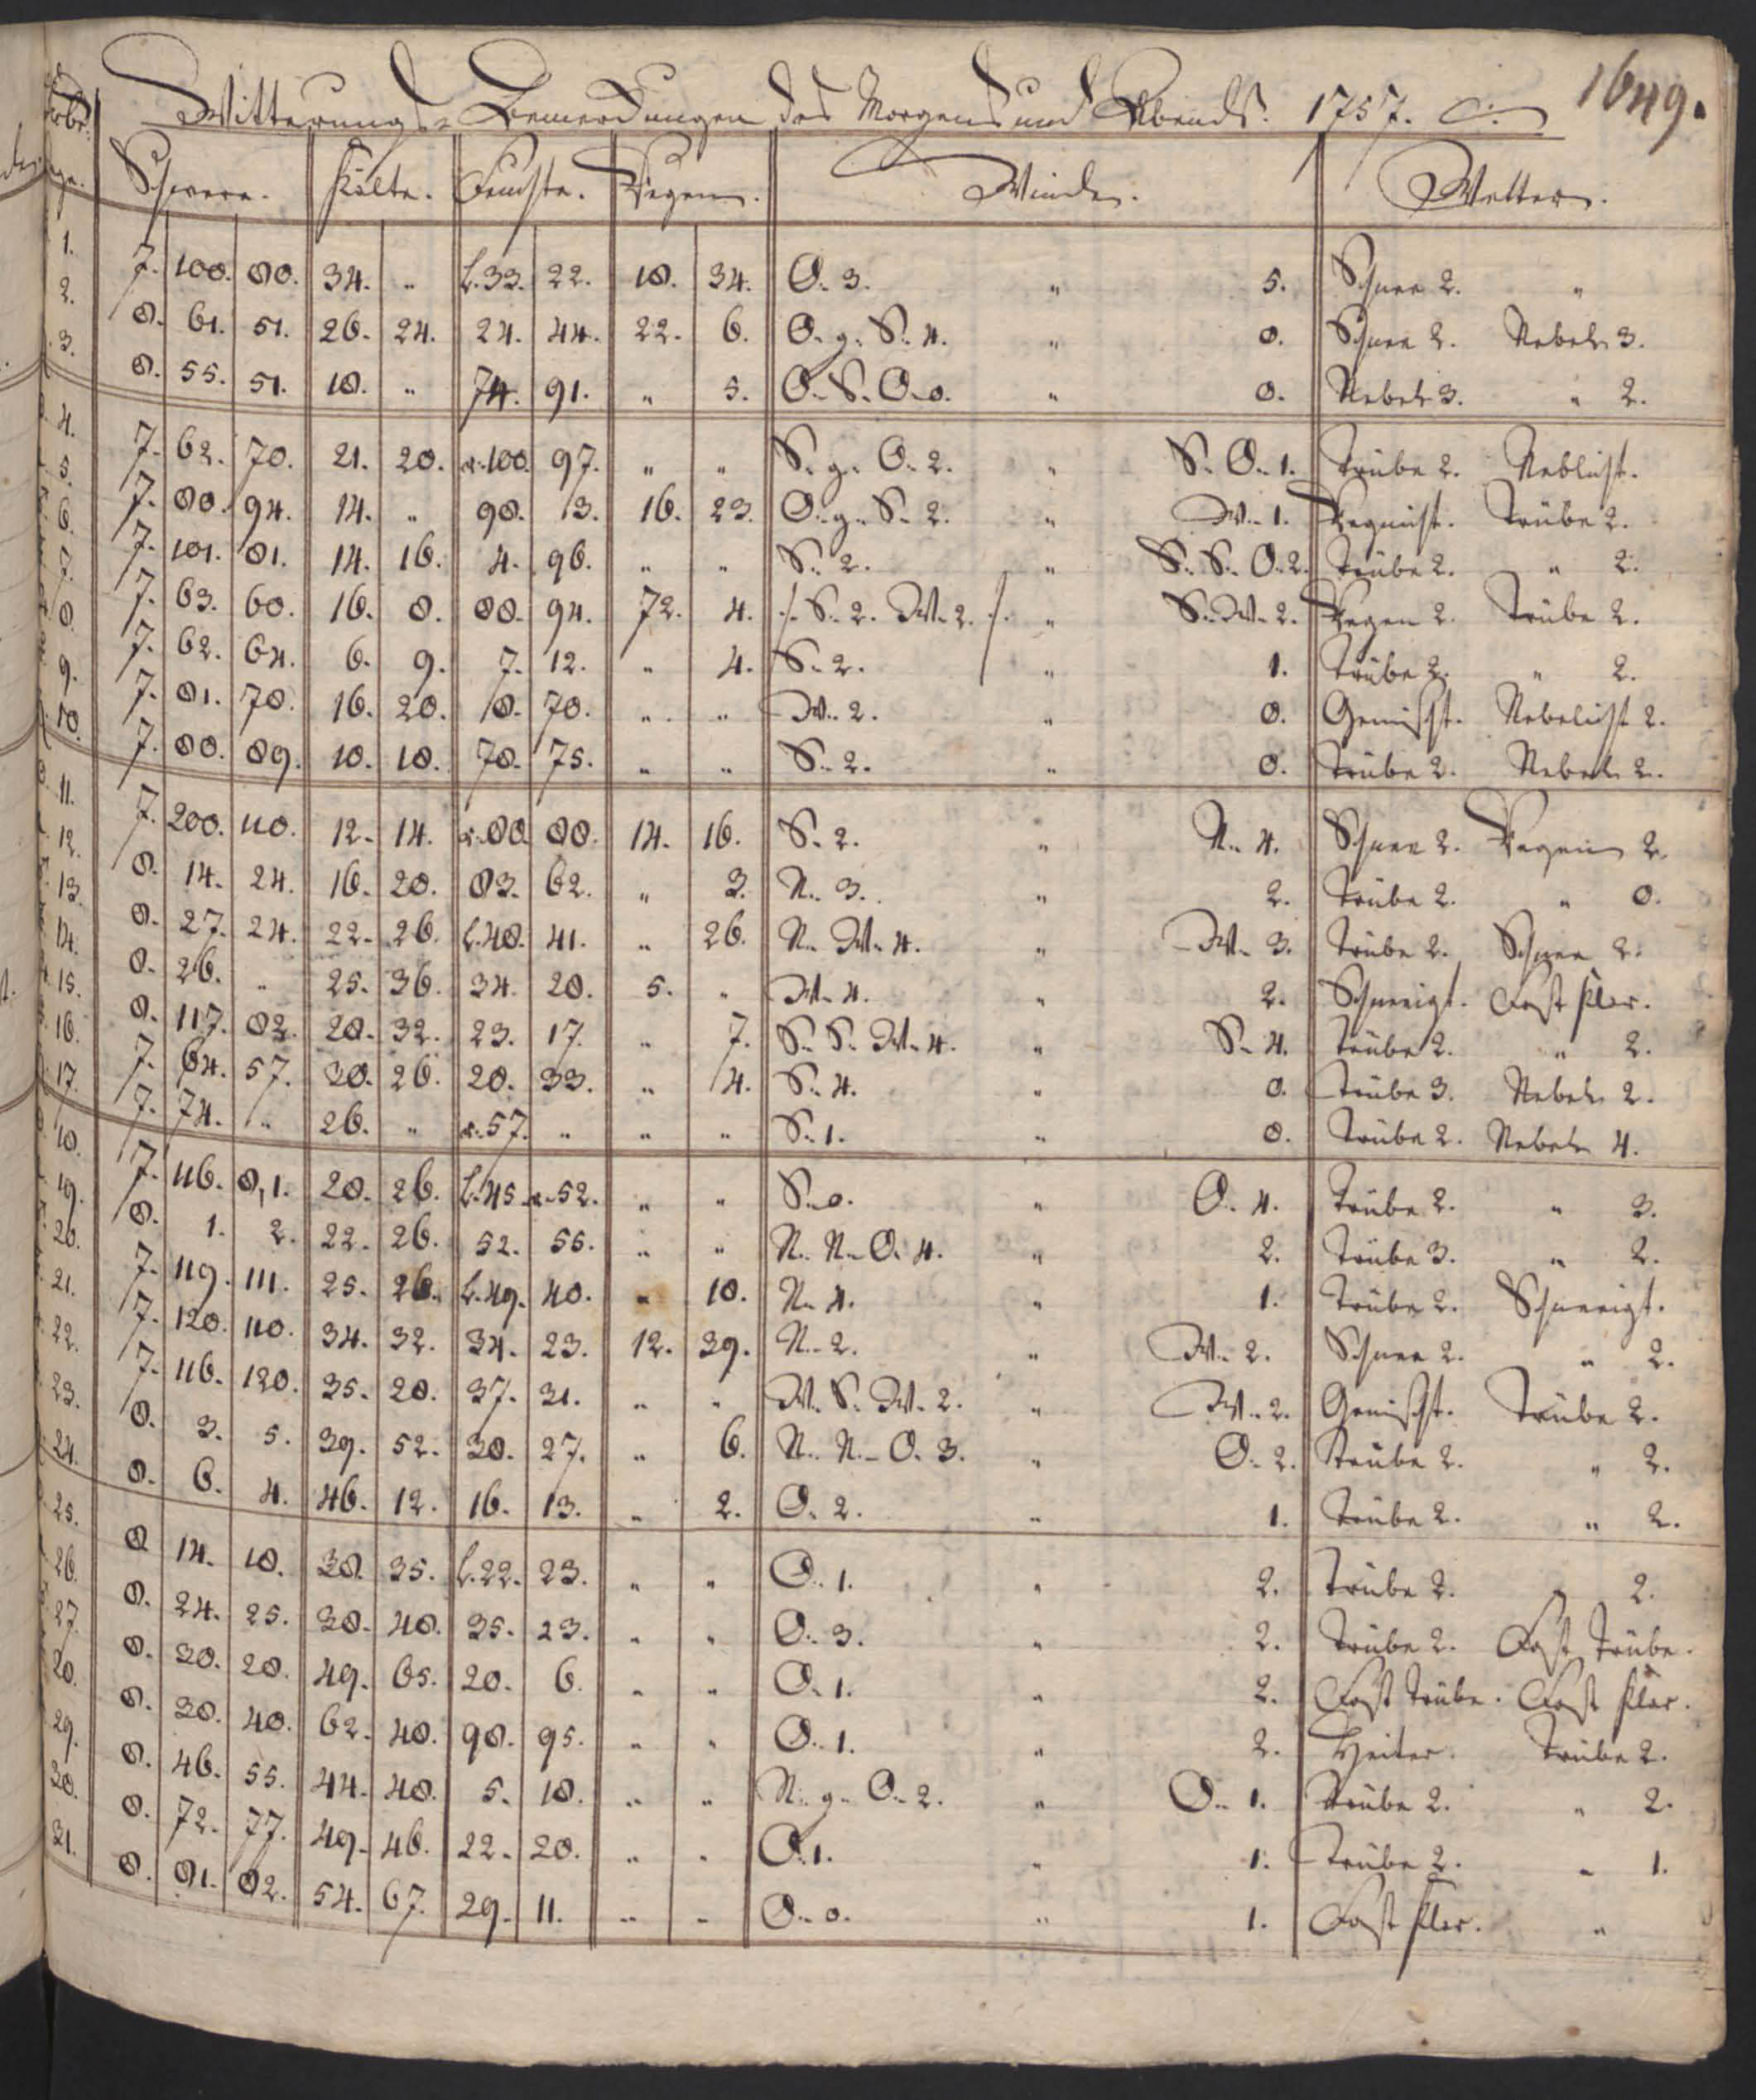 Witterungs-Bemerckungen des Morgens und Abends. 1757. 1649.
Schwere. Kälte. Feuchte. Regen. Winde. Wetter.
1. 7. 100. 80. 34. " L. 33. 22. 18. 34. O. 3. " 5. Schnee 2. "
2. 8. 61. 51. 26. 24. 24. 44. 22. 6. O. g. S. 4. " 0. Schnee 2. Nebel 3.
3. 8. 55. 51. 18. " 74. 91. " 5. O. S. O. 0. " 0. Nebel 3. " 2.
4. 7. 62. 70. 21. 20. r. 100. 97. " " S. g. O. 2. " S. O. 1. Trübe 2. Neblicht.
5. 7. 80. 94. 14. " 98. 13. 16. 23. O. g. S. 2. " W. 1. Regnicht. Trübe 2.
6. 7. 101. 81. 14. 16. 4. 96. " " S. 2. " S. S. O. 2. Trübe 2. " 2.
7. 7. 63. 60. 16. 8. 88. 94. 72. 4. /. S. 2. W. 2. /. " S. W. 2. Regen 2. Trübe 2.
8. 7. 62. 64. 6. 9. 7. 12. " 4. S. 2. " 1. Trübe 2. " 2.
9. 7. 81. 78. 16. 20. 8. 70. " " W. 2. " 0. Gemischt. Nebelicht 2.
10. 7. 80. 89. 18. 18. 78. 75. " " S. 2. " 0. Trübe 2. Nebel 2.
11. 7. 200. 110. 12. 14. r. 80. 80. 14. 16. S. 2. " N. 4. Schnee 2. Regen 2.
12. 8. 14. 24. 16. 20. 83. 62. " 3. N. 3. " 2. Trübe 2. " 0.
13. 8. 27. 24. 22. 26. L. 48. 41. " 26. N. W. 4. " W. 3. Trübe 2. Schnee 2.
14. 8. 26. " 25. 36. 34. 28. 5. " W. 4. " 2. Schneeigt. Fast klar.
15. 8. 117. 82. 28. 32. 23. 17. " 7. S. S. W. 4. " S. 4. Trübe 2. " 2.
16. 7. 64. 57. 30. 26. 20. 33. " 4. S. 4. " 0. Trübe 3. Nebel 2.
17. 7. 74. " 26. " r. 57. " " " S. 1. " 0. Trübe 2. Nebel 4.
18. 7. 116. 8,1. 28. 26. L. 45. r. 52. " " S. 0. " O. 4. Trübe 2. " 3.
19. 8. 1. 2. 22. 26. 52. 55. " " N. N. O. 4. " 2. Trübe 3. " 2.
20. 7. 119. 111. 25. 26. L. 49. 40. " 18. N. 4. " 1. Trübe 2. Schneeigt.
21. 7. 120. 110. 34. 32. 34. 23. 12. 39. N. 2. " W. 2. Schnee 2. " 2.
22. 7. 116. 120. 35. 28. 37. 31. " " W. S. W. 2. " W. 2. Gemischt. Trübe 2.
23. 8. 3. 5. 39. 52. 30. 27. " 6. N. N. O. 3. " O. 2. Trübe 2. " 2.
24. 8. 6. 4. 46. 12. 16. 13. " 2. O. 2. " 1. Trübe 2. " 2.
25. 8 14. 18. 38. 35. L. 22. 23. " " O. 1. " 2. Trübe 2. " 2.
26. 8. 24. 25. 38. 48. 35. 23. " " O. 3. " 2. Trübe 2. Fast Trübe.
27. 8. 30. 28. 49. 65. 20. 6. " " O. 1. " 2. Fast Trübe. Fast klar.
28. 8. 38. 40. 62. 48. 98. 95. " " O. 1. " 2. Heiter. Trübe 2.
29. 8. 46. 55. 44. 48. 5. 18. " " N. g. O. 2. " O. 1. Trübe 2. " 2.
30. 8. 72. 77. 49. 46. 22. 20. " " O. 1. " 1. Trübe 2. " 1.
31. 8. 81. 82. 54. 67. 29. 11. " " O. 0. " 1. Fast klar. "